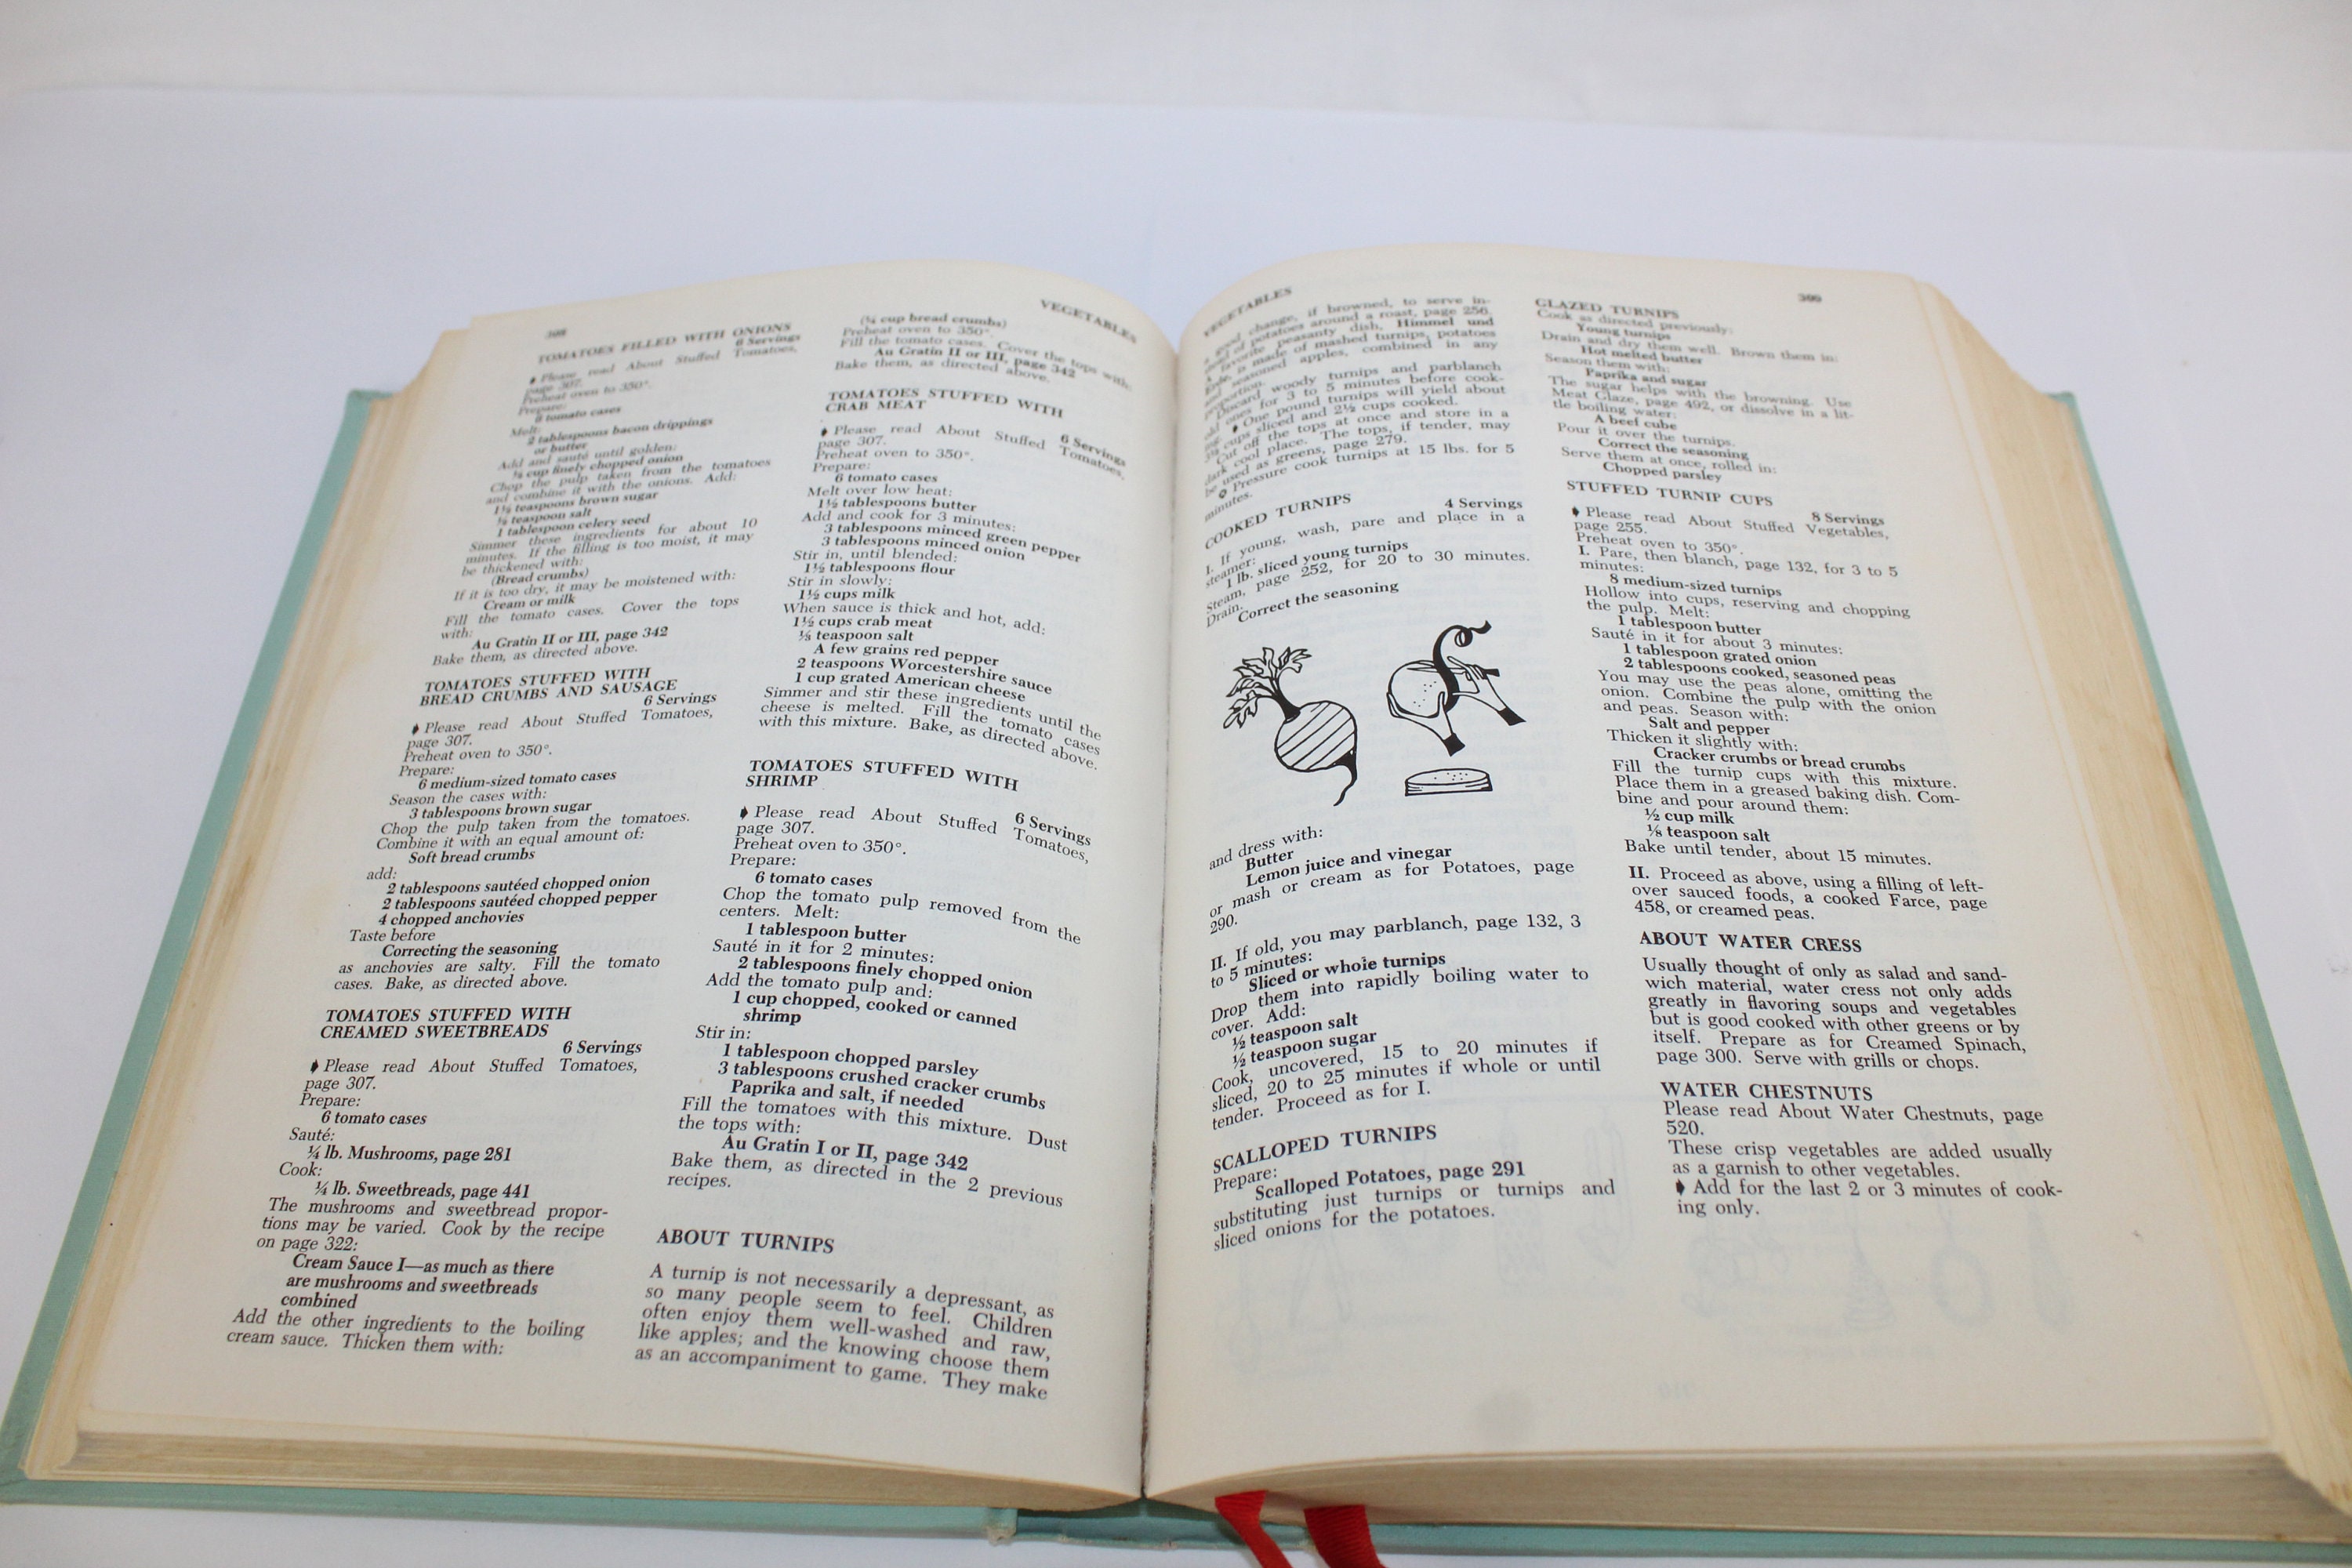 308
VEGETABLES
TOMATOES FILLED WITH ONIONS
6 Servings
♦ Please read About Stuffed Tomatoes,
page 307.
Preheat oven to 350°.
Prepare:
6 tomato cases
Melt:
2 tablespoons bacon drippings
or butter
Add and sauté until golden:
cup finely chopped onion
Chop the pulp taken from the tomatoes
and combine it with the onions. Add:
1½ teaspoons brown sugar
teaspoon salt
1 tablespoon celery seed
Simmer these ingredients for about 10
minutes. If the filling is too moist, it may
be thickened with:
(Bread crumbs)
If it is too dry, it may be moistened with:
Cream or milk
Fill the tomato cases. Cover the tops
with:
Au Gratin II or III, page 342
Bake them, as directed above.
TOMATOES STUFFED WITH
BREAD CRUMBS AND SAUSAGE
6 Servings
♦ Please read About Stuffed Tomatoes,
page 307.
Preheat oven to 350°.
Prepare:
6 medium-sized tomato cases
Season the cases with:
3 tablespoons brown sugar
Chop the pulp taken from the tomatoes.
Combine it with an equal amount of:
Soft bread crumbs
add:
2 tablespoons sautéed chopped onion
2 tablespoons sautéed chopped pepper
4 chopped anchovies
Taste before
Correcting the seasoning
as anchovies are salty. Fill the tomato
cases. Bake, as directed above.
TOMATOES STUFFED WITH
CREAMED SWEETBREADS
6 Servings
♦ Please read About Stuffed Tomatoes,
page 307.
Prepare:
6 tomato cases
Sauté:
¼ lb. Mushrooms, page 281
Cook:
¼ lb. Sweetbreads, page 441
The mushrooms and sweetbread propor-
tions may be varied. Cook by the recipe
on page 322:
Cream Sauce I—as much as there
are mushrooms and sweetbreads
combined
Add the other ingredients to the boiling
cream sauce. Thicken them with:
(¼ cup bread crumbs)
Preheat oven to 350°.
Fill the tomato cases. Cover the tops with:
Au Gratin II or III, page 342
Bake them, as directed above.
TOMATOES STUFFED WITH
CRAB MEAT
6 Servings
♦ Please read About Stuffed Tomatoes,
page 307.
Preheat oven to 350°.
Prepare:
6 tomato cases
Melt over low heat:
1½ tablespoons butter
Add and cook for 3 minutes:
3 tablespoons minced green pepper
3 tablespoons minced onion
Stir in, until blended:
1½ tablespoons flour
Stir in slowly:
1½ cups milk
When sauce is thick and hot, add:
1½ cups crab meat
⅛ teaspoon salt
A few grains red pepper
2 teaspoons Worcestershire sauce
1 cup grated American cheese
Simmer and stir these ingredients until the
cheese is melted. Fill the tomato cases
with this mixture. Bake, as directed above.
TOMATOES STUFFED WITH
SHRIMP
6 Servings
♦ Please read About Stuffed Tomatoes,
page 307.
Preheat oven to 350°.
Prepare:
6 tomato cases
Chop the tomato pulp removed from the
centers. Melt:
1 tablespoon butter
Sauté in it for 2 minutes:
2 tablespoons finely chopped onion
Add the tomato pulp and:
1 cup chopped, cooked or canned
shrimp
Stir in:
1 tablespoon chopped parsley
3 tablespoons crushed cracker crumbs
Paprika and salt, if needed
Fill the tomatoes with this mixture. Dust
the tops with:
Au Gratin I or II, page 342
Bake them, as directed in the 2 previous
recipes.
ABOUT TURNIPS
A turnip is not necessarily a depressant, as
so many people seem to feel. Children
often enjoy them well-washed and raw,
like apples; and the knowing choose them
as an accompaniment to game. They make
VEGETABLES
309
a good change, if browned, to serve in-
stead of potatoes around a roast, page 256.
A favorite peasanty dish, Himmel und
Erde, is made of mashed turnips, potatoes
and seasoned apples, combined in any
proportion.
Discard woody turnips and parblanch
old ones for 3 to 5 minutes before cook-
ing. ♦ One pound turnips will yield about
cups sliced and 2½ cups cooked.
Cut off the tops at once and store in a
dark cool place. The tops, if tender, may
be used as greens, page 279.
Pressure cook turnips at 15 lbs. for 5
minutes.
COOKED TURNIPS
4 Servings
I. If young, wash, pare and place in a
steamer:
1 lb. sliced young turnips
Steam, page 252, for 20 to 30 minutes.
Drain.
Correct the seasoning
and dress with:
Butter
Lemon juice and vinegar
or mash or cream as for Potatoes, page
290.
II. If old, you may parblanch, page 132, 3
to 5 minutes:
Sliced or whole turnips
Drop them into rapidly boiling water to
cover. Add:
½ teaspoon salt
½ teaspoon sugar
Cook, uncovered, 15 to 20 minutes if
sliced, 20 to 25 minutes if whole or until
tender. Proceed as for I.
SCALLOPED TURNIPS
Prepare:
Scalloped Potatoes, page 291
substituting just turnips or turnips and
sliced onions for the potatoes.
GLAZED TURNIPS
Cook as directed previously:
Young turnips
Drain and dry them well. Brown them in:
Hot melted butter
Season them with:
Paprika and sugar
The sugar helps with the browning. Use
Meat Glaze, page 492, or dissolve in a lit-
tle boiling water:
A beef cube
Pour it over the turnips.
Correct the seasoning
Serve them at once, rolled in:
Chopped parsley
STUFFED TURNIP CUPS
8 Servings
♦ Please read About Stuffed Vegetables,
page 255.
Preheat oven to 350°.
I. Pare, then blanch, page 132, for 3 to 5
minutes:
8 medium-sized turnips
Hollow into cups, reserving and chopping
the pulp. Melt:
1 tablespoon butter
Sauté in it for about 3 minutes:
1 tablespoon grated onion
2 tablespoons cooked, seasoned peas
You may use the peas alone, omitting the
onion. Combine the pulp with the onion
and peas. Season with:
Salt and pepper
Thicken it slightly with:
Cracker crumbs or bread crumbs
Fill the turnip cups with this mixture.
Place them in a greased baking dish. Com-
bine and pour around them:
½ cup milk
⅛ teaspoon salt
Bake until tender, about 15 minutes.
II. Proceed as above, using a filling of left-
over sauced foods, a cooked Farce, page
458, or creamed peas.
ABOUT WATER CRESS
Usually thought of only as salad and sand-
wich material, water cress not only adds
greatly in flavoring soups and vegetables
but is good cooked with other greens or by
itself. Prepare as for Creamed Spinach,
page 300. Serve with grills or chops.
WATER CHESTNUTS
Please read About Water Chestnuts, page
520.
These crisp vegetables are added usually
as a garnish to other vegetables.
♦ Add for the last 2 or 3 minutes of cook-
ing only.